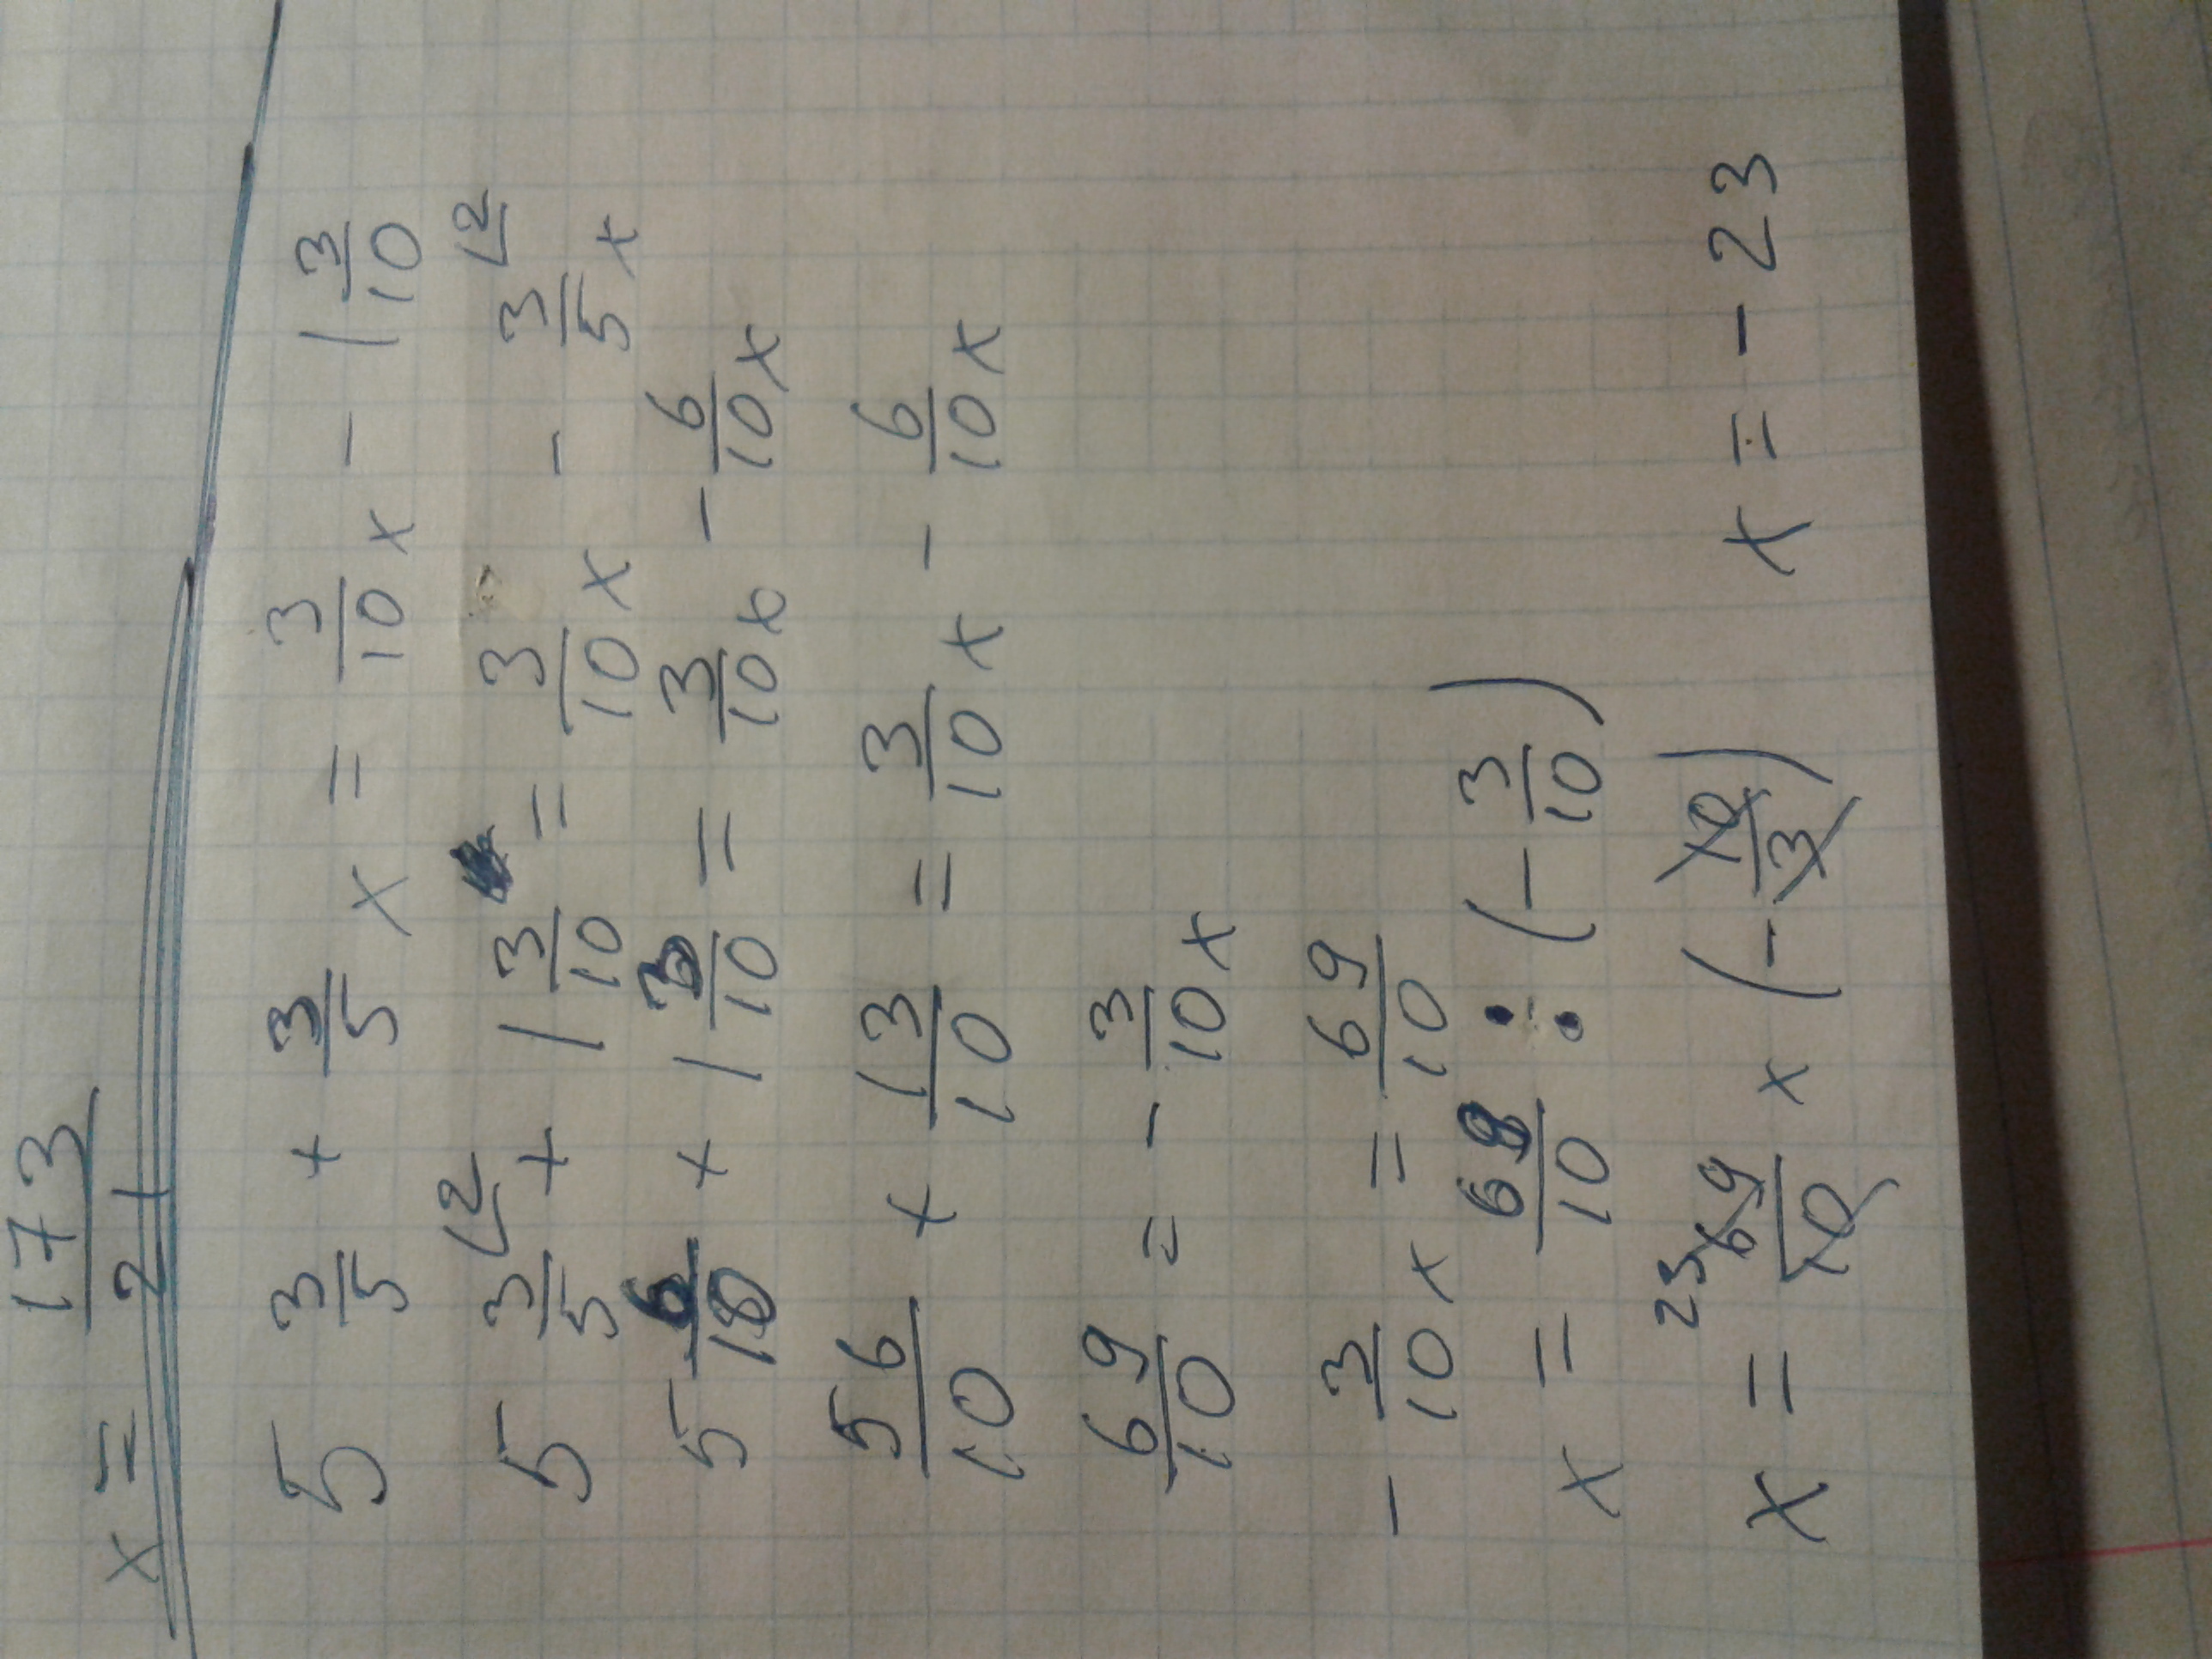 x = 173/21
5 3/5 + 3/5 x = 3/10 x - 1 3/10
5 3/5 L2 + 1 3/10 = 3/10 x - 3/5 L2 x
5 6/10 + 1 3/10 = 3/10 x - 6/10 x
56/10 + 13/10 = 3/10 x - 6/10 x
69/10 = - 3/10 x
- 3/10 x = 69/10
x = 69/10 : (- 3/10)
x = 23 69/10 x (- 10/3) x = - 23